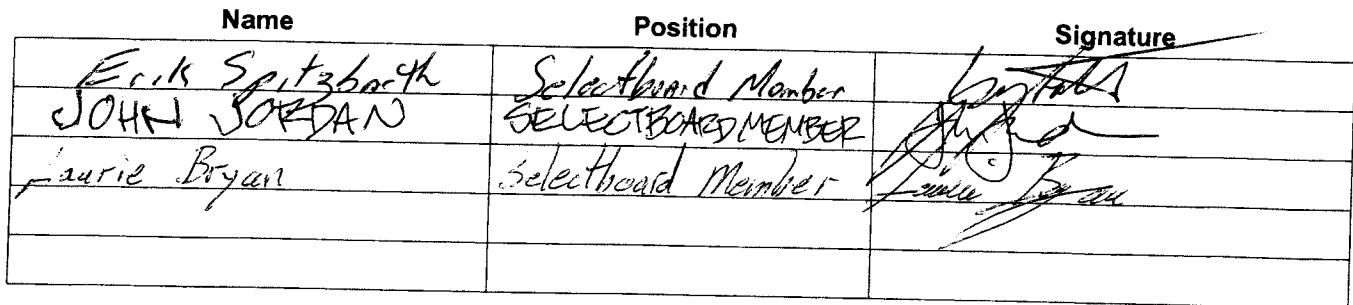 Name Position Signature
Erik Spitzbarth Selectboard Member
JOHN JORDAN SELECTBOARD MEMBER
Laurie Bryan Selectboard Member Laurie Bryan